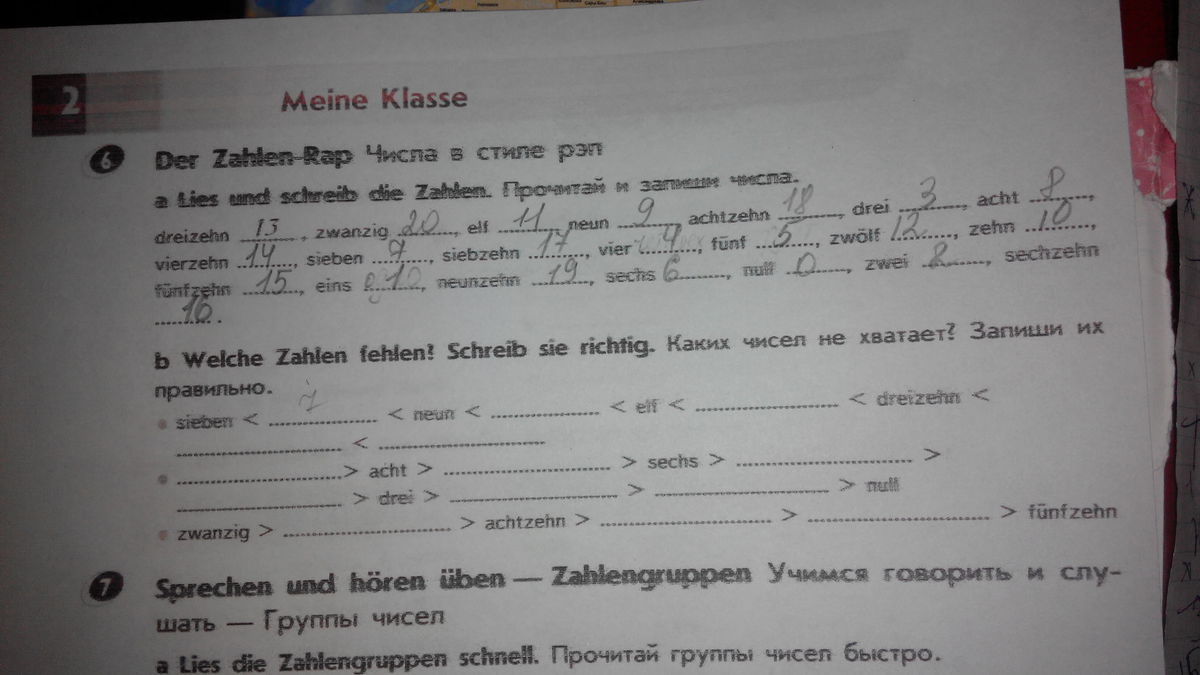 2 Meine Klasse
6 Der Zahlen-Rap Числа в стиле рэп
a Lies und schreib die Zahlen. Прочитай и запиши числа.
dreizehn 13, zwanzig 20, elf 11, neun 9, achtzehn 18, drei 3, acht 8,
vierzehn 14, sieben 7, siebzehn 17, vier 4, fünf 5, zwölf 12, zehn 10,
fünfzehn 15, eins, neunzehn 19, sechs 6, null 0, zwei 2, sechzehn
16.
b Welche Zahlen fehlen? Schreib sie richtig. Каких чисел не хватает? Запиши их
правильно.
• sieben < ........ < neun < ........ < elf < ........ < dreizehn <
........ < ........
• ........ > acht > ........ > sechs > ........ >
........ > drei > ........ > ........ > null
• zwanzig > ........ > achtzehn > ........ > ........ > fünfzehn
7 Sprechen und hören üben — Zahlengruppen Учимся говорить и слу-
шать — Группы чисел
a Lies die Zahlengruppen schnell. Прочитай группы чисел быстро.